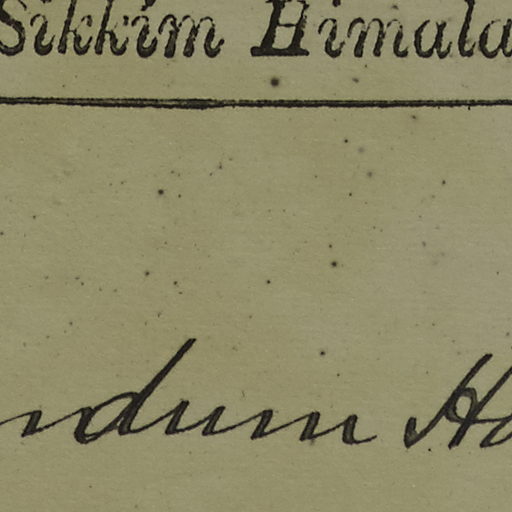 Sikkim Himala
ndum Ho